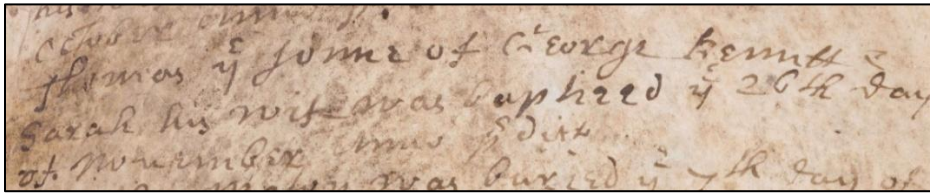 october anno
Thomas yᵉ sonne of George Kennitt &
Sarah his wife was baptized yᵉ 26th day
of November anno pʳdict
was buried yᵉ 7th day of